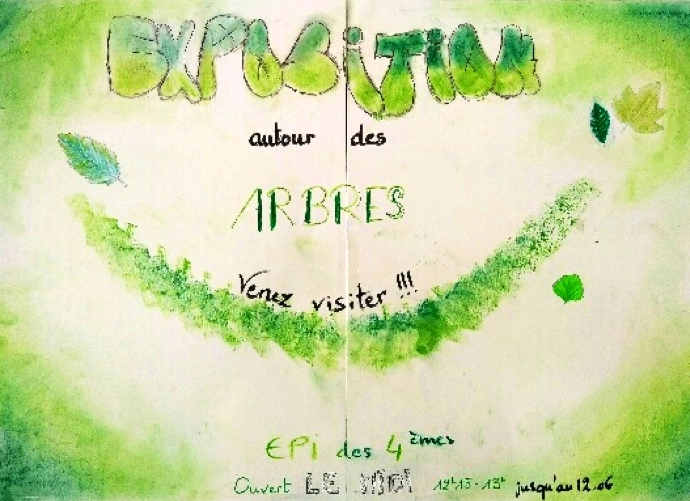 EXPOSITION
autour des
ARBRES
Venez visiter !!!
EPi des 4èmes
Ouvert LE MIDI 12h15-13h jusqu'au 12.06